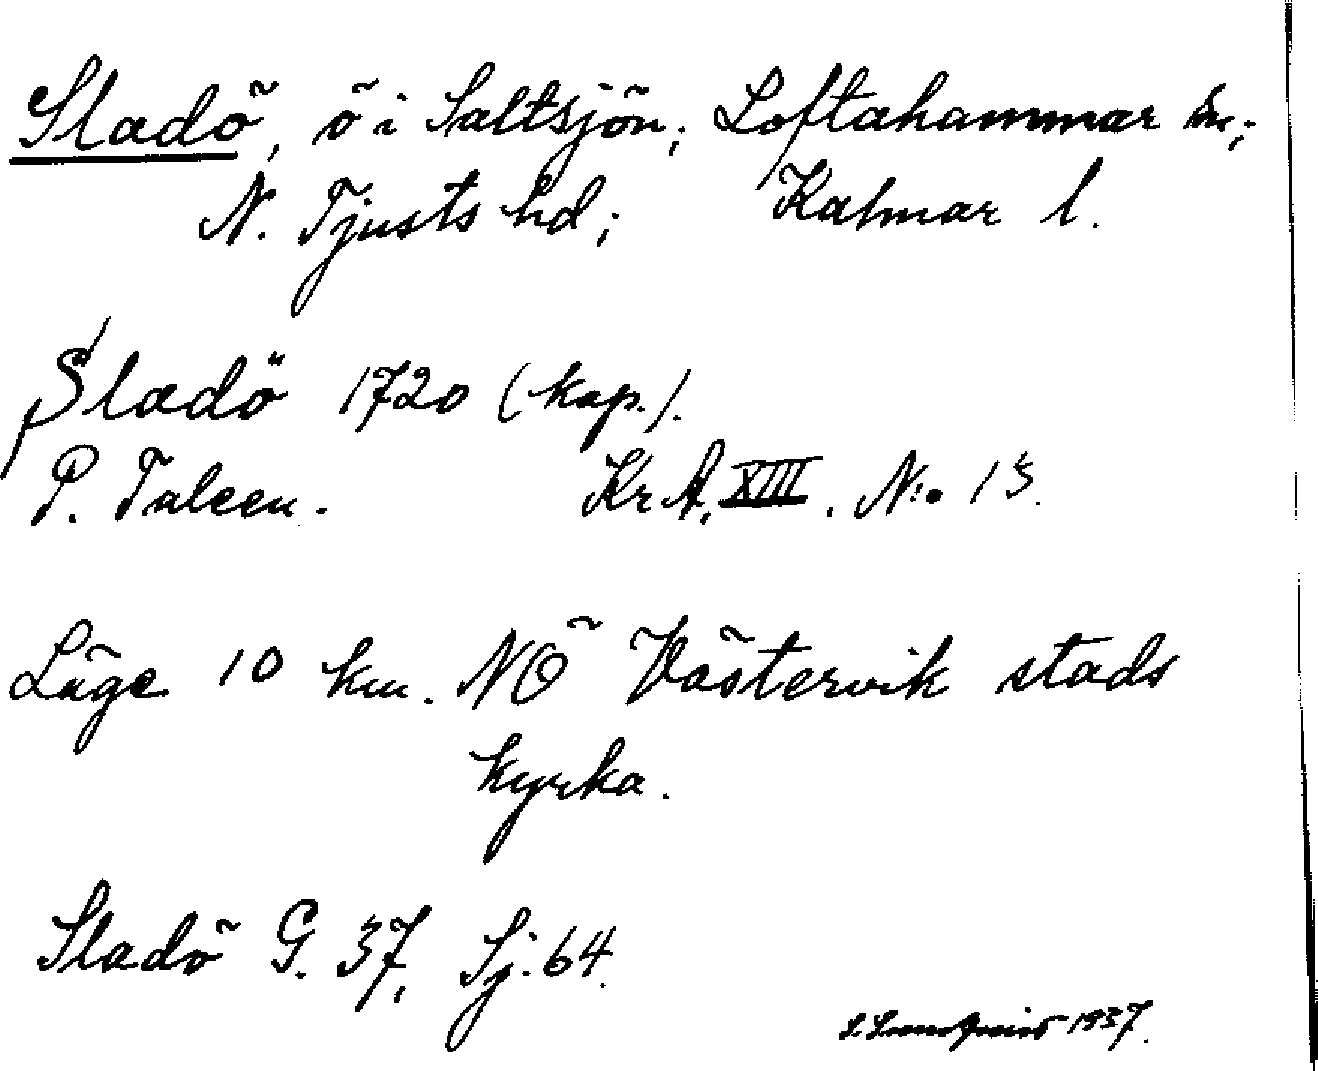 Sladö, ö i Saltsjön; Loftahammar sn;
N. Tjusts hd; Kalmar l.
Sladö 1720 (kop.).
P. Tuleen. KrA, XIII. N:o 13.
Läge 10 km. NÖ Västervik stads
kyrka.
Sladö G. 37, Sj. 64.
1937.